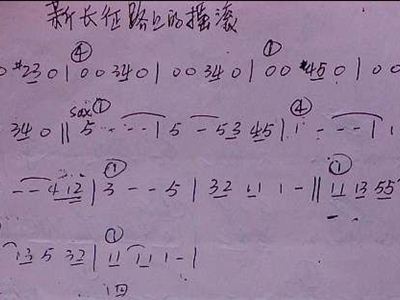 新长征路上的摇滚
④ ①
0 #23 0 | 0 0 34 0 | 0 0 34 0 | 0 0 #45 0 | 0 0
sax ① ④
34 0 || 5 - - - | 5 - 53 45 | 1 - - - | 1
① ①
- - 4 12 | 3 - - 5 | 32 11 1 - || 11 13 55
①
13 5 32 | 11 11 1 - |
四